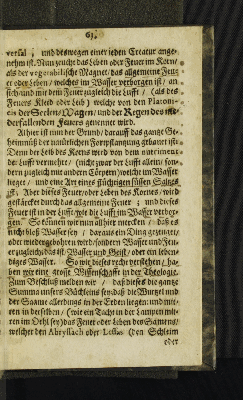 63.
versal, und deswegen einer jeden Creatur ange-
nehm ist. Nun zeucht das Leben oder Feuer im Korn/
als der vegetabilische Magnet/ das allgemeine Feuer
er oder Leben/ welches im Wasser verborgen ist/ an
sich/ und mit dem Feuer zugleich die Lufft/ (als des
Feuers Kleid oder Leib) welche von den Platoni-
der Seelen/Wagen/ und der Regen des nie-
derfallenden Feuers genennet wird.
Alhier ist nun der Grund/ darauff das gantze Ge-
heimnüß der natürlichen Fortpflantzung gebauet ist.
Denn der Leib des Korns wird von dem
der Lufft vermehrt/ (nicht zwar der Lufft allein/ son-
dern zugleich mit andern Cörpern) welche im Wasser
lieget/ und eine Art eines flüchtigen süssen Saltzes
ist. Aber dieses Feuer/ oder Leben des Kornes/ wird
gestärcket durch das allgemeine Feuer; und dieses
Feuer ist in der Lufft/ wie die Lufft im Wasser verbor-
gen. So können wir nun alhier mercken/ daß es
nicht bloß Wasser sey/ daraus ein Ding gezeuget/
oder wiedergebohren wird/ sondern Wasser und Feu-
er zugleich; das ist/ Wasser und Geist/ oder ein leben-
diges Wasser. So wir dieses recht verstehen/ ha-
ben wir eine grosse Wissenschafft in der Theologie.
Zum Beschluß melden wir/ daß dieses die gantze
Summa unsers Büchleins sey: daß die Wurtzel und
der Saame allerdings in der Erden liegen: und mit-
ten in derselben/ (wie ein Tacht in der Lampen mit-
ten im Oehl sey) das Feuer oder Leben des Samens/
welcher den Abryssach oder Lessas (den Schleim
oder